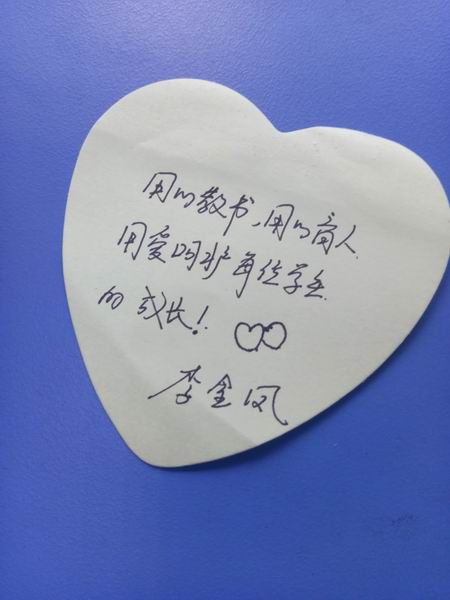 用心教书、用心育人
用爱呵护每位学生
的成长！
李金凤